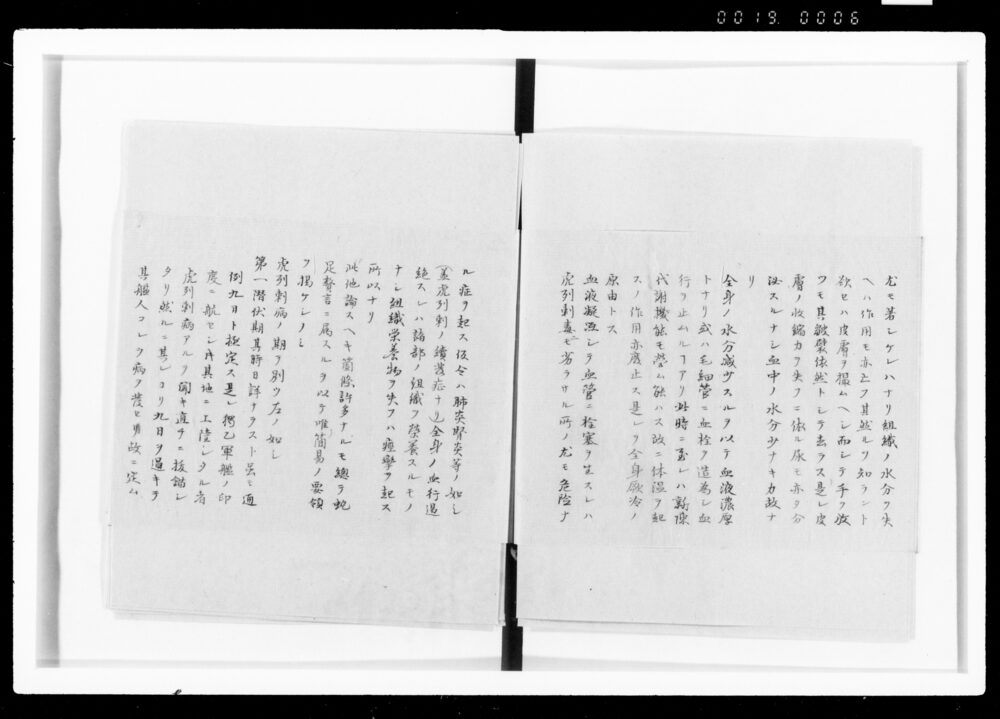 0019. 0006
尤モ著シケレハナリ組織ノ水分ヲ失
ヘハ作用モ亦亡フ其然ルヲ知ラント
欲セハ皮膚ヲ撮ムヘシ而シテ手ヲ放
ツモ其皺襞依然トシテ去ラス是レ皮
膚ノ收縮力ヲ失フニ依ル尿モ亦タ分
泌スルナシ血中ノ水分少ナキカ故ナ
リ
全身ノ水分減少スルヲ以テ血液濃厚
トナリ或ハ毛細管ニ血栓ヲ造為シ血
行ヲ止ムルヿアリ此時ニ至レハ新陳
代謝機能モ營ム能ハス故ニ体温ヲ起
スノ作用亦廃止ス是レヲ全身厥冷ノ
原由トス
血液凝沍シテ血管ニ栓塞ヲ生スレハ
虎列刺毒モ劣ラサル所ノ尤モ危険ナ
ル症ヲ起ス仮令ハ肺炎腎炎等ノ如シ
(盖虎列刺ノ續発症ナリ)全身ノ血行遏
絶スレハ諸部ノ組織ヲ榮養スルモノ
ナシ組織栄養物ヲ失フハ痙攣ヲ起ス
所以ナリ
此他論スヘキ箇條許多ナルモ總テ蛇
足贅言ニ属スルヲ以テ唯簡易ノ要領
ヲ掲ケシノミ
虎列刺病ノ期ヲ別ツ左ノ如シ
第一潜伏期其時日詳ナラスト虽モ通
例九日ト極定ス是レ獨乙軍艦ノ印
度ニ航セシ其地ニ上陸シタル者
虎列刺病アルヲ聞キ直チニ抜錨シ
タリ然ルニ其レヨリ九日ヲ過キテ
其艦人コレラ病ヲ発セリ故ニ定ム